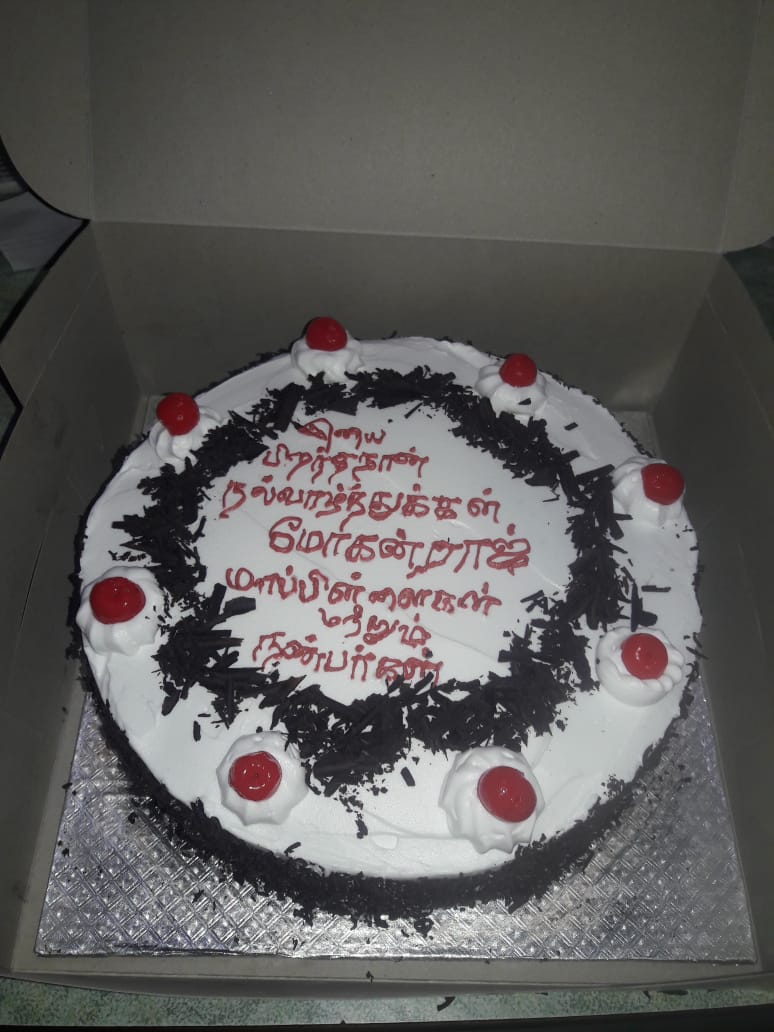 இனிய
பிறந்தநாள்
நல்வாழ்த்துக்கள்
மோகன்ராஜ்
மாப்பிள்ளைகள்
மற்றும்
நண்பர்கள்